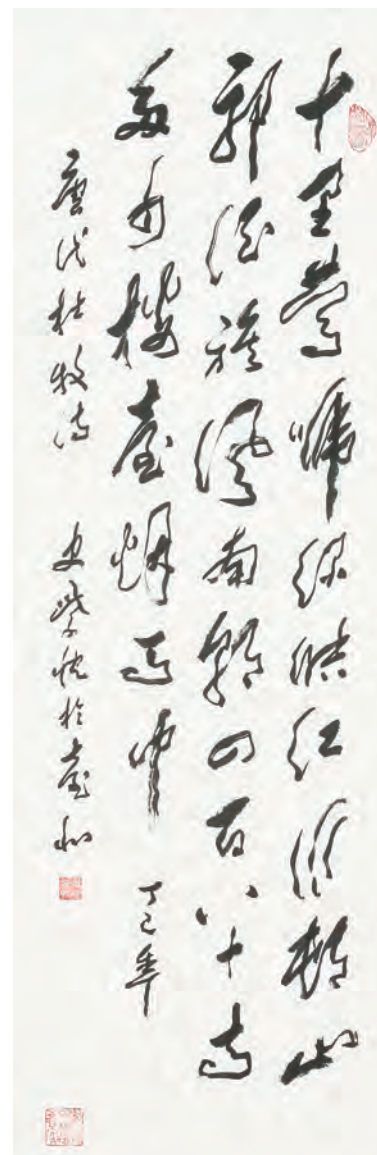 千里鶯啼綠映紅水村山
郭酒旗風南朝四百八十寺
多少樓臺煙雨中 丁巳年
唐代杜牧詩 史紫忱於臺北